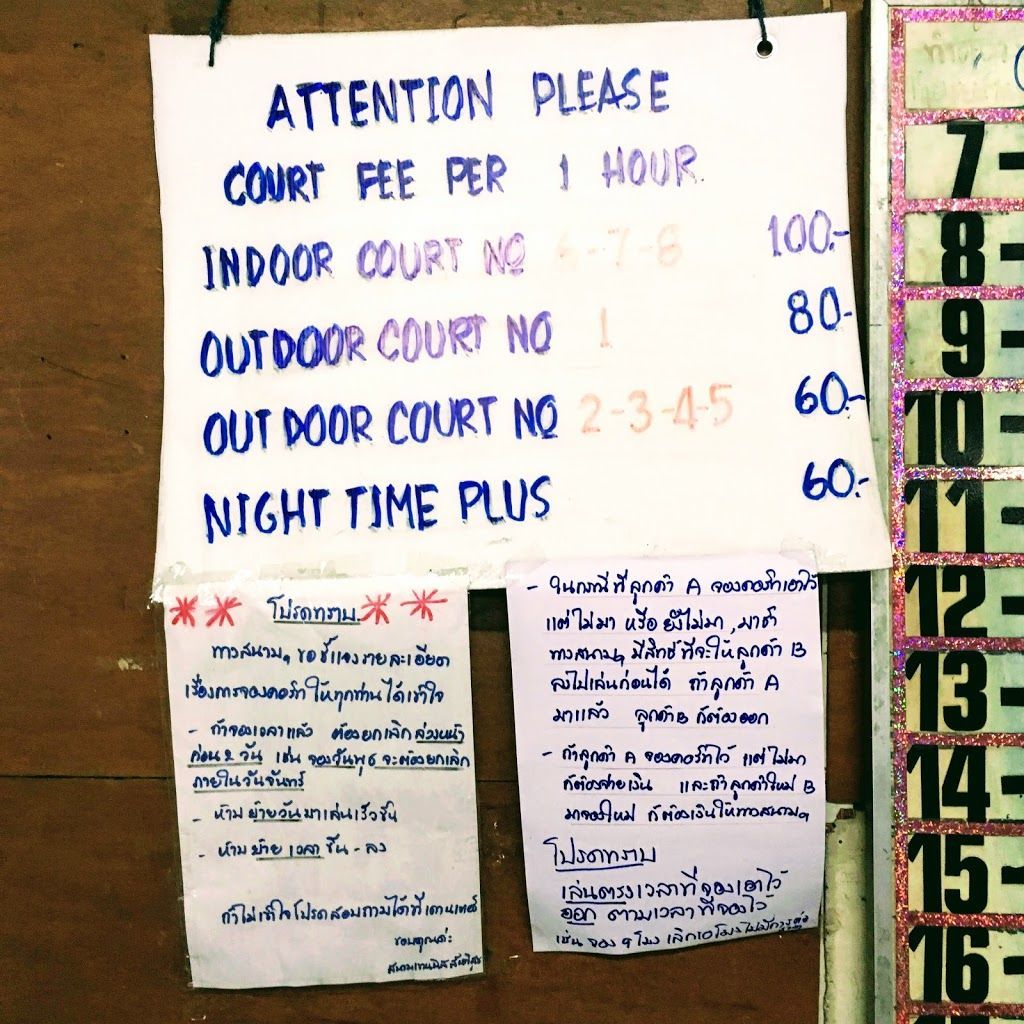 ATTENTION PLEASE
COURT FEE PER 1 HOUR
INDOOR COURT NO 6-7-8 100.-
OUTDOOR COURT NO 1 80.-
OUTDOOR COURT NO 2-3-4-5 60.-
NIGHT TIME PLUS 60.-
โปรดทราบ
ทางสนามฯ ขอชี้แจงรายละเอียด
เรื่องการจองคอร์ทให้ทุกท่านได้เข้าใจ
- ถ้าจองเวลาแล้ว ต้องยกเลิกล่วงหน้า
ก่อน 2 วัน เช่น จองวันพุธ จะต้องยกเลิก
ภายในวันจันทร์
- ห้ามย้ายวันมาเล่นเร็วขึ้น
- ห้ามย้ายเวลาขึ้น-ลง
ถ้าไม่เข้าใจโปรดสอบถามได้ที่เคาน์เตอร์
ขอบคุณค่ะ
สนามเทนนิส
- ในกรณีที่ลูกค้า A จองคอร์ทเอาไว้
แต่ไม่มา หรือ ยังไม่มา,
ทางสนามฯ มีสิทธิ์ที่จะให้ลูกค้า B
ลงไปเล่นก่อนได้ ถ้าลูกค้า A
มาแล้ว ลูกค้า B ก็ต้องออก
- ถ้าลูกค้า A จองคอร์ทไว้ แต่ไม่มา
ก็ต้องจ่ายเงิน และถ้าลูกค้าใหม่ B
มาจองใหม่ ก็ต้องเงินให้ทางสนามฯ
โปรดทราบ
เล่นตรงเวลาที่จองเอาไว้
ออก ตามเวลาที่จองไว้
เช่น จอง 9 โมง เลิก 10 โมง ไม่มีการต่อ
7-
8-
9-
10-
11-
12-
13-
14-
15-
16-